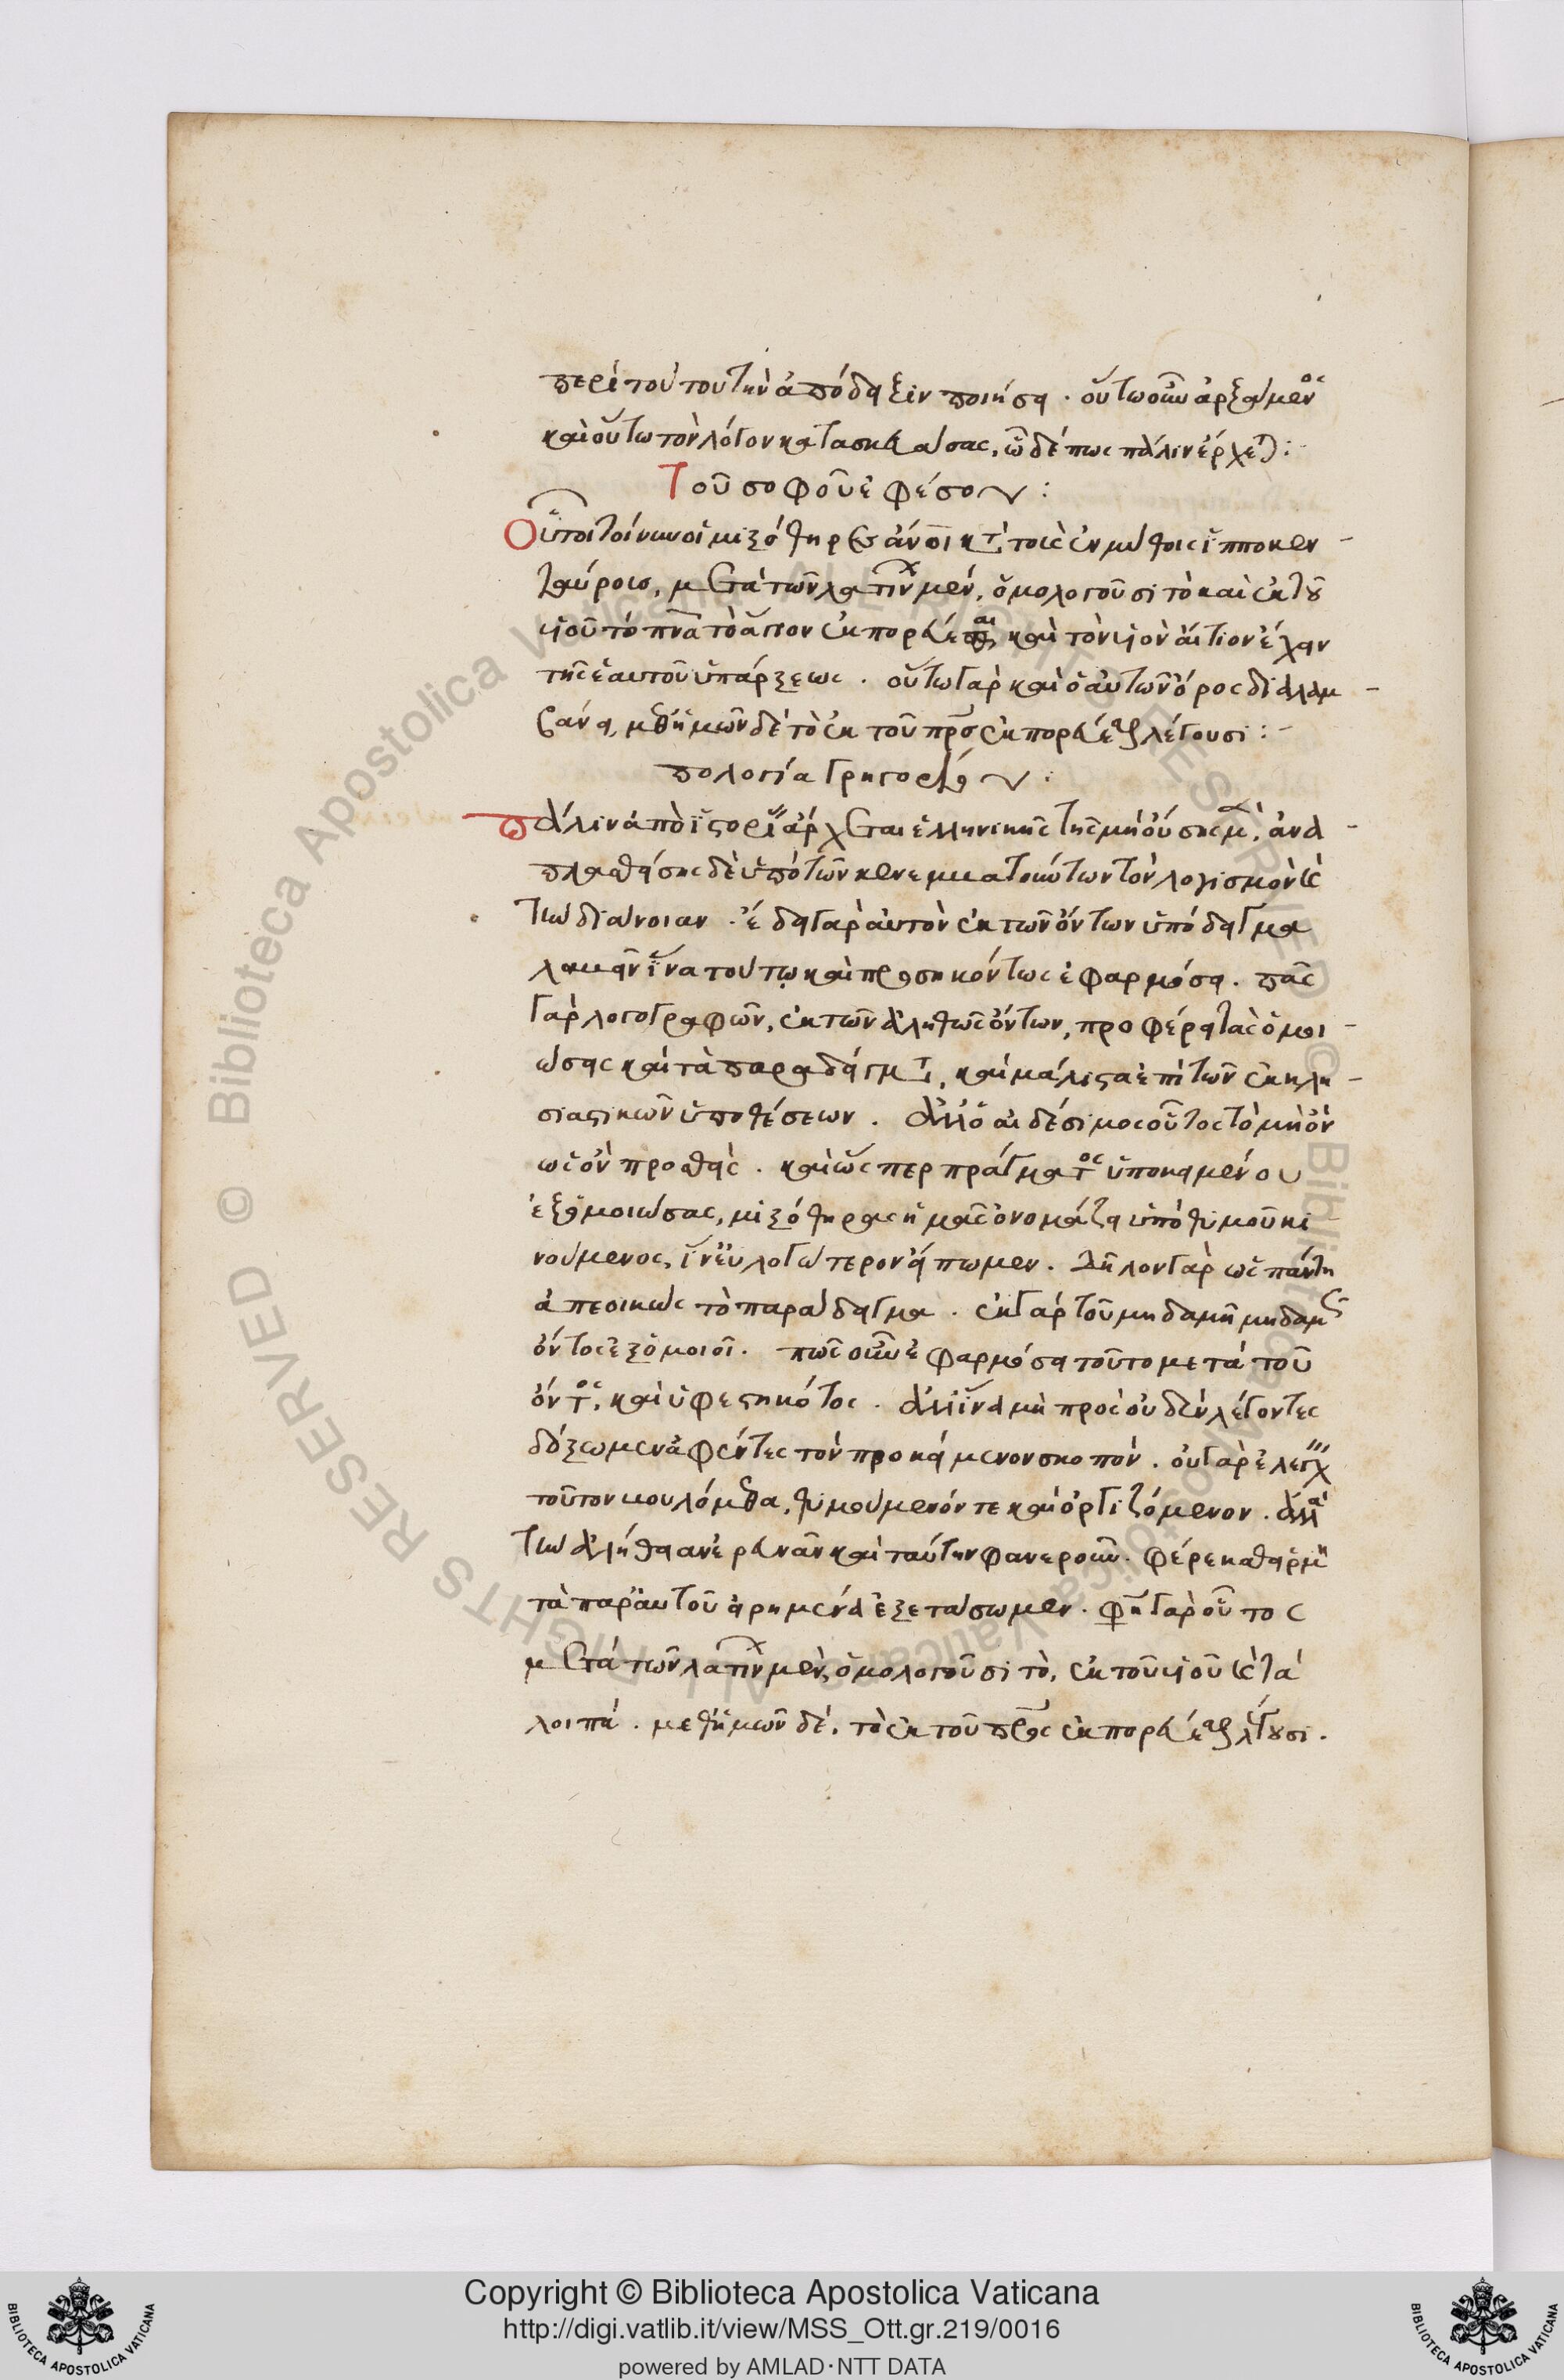 περὶ τούτου τὴν ἀπόδειξιν ποιήσει. οὕτω οὖν ἀρξάμενος
καὶ οὕτω τὸν λόγον κατασκευάσας, ὧδέ πως πάλιν ἔρχεται:
Τοῦ σοφοῦ ἐφέσου:
Οὗτοι τοίνυν οἱ μιξόθηρες ἄνοι κατὰ τοὺς ἐν μύθοις ἱπποκεν-
ταύροις, μετὰ τῶν λατίνων μὲν, ὁμολογοῦσι τὸ καὶ ἐκ τοῦ
υἱοῦ τὸ πνα τὸ ἅγιον ἐκπορεύεσθαι καὶ τὸν υἱὸν αἴτιον ἔχειν
τῆς ἑαυτοῦ ὑπάρξεως. οὕτω γὰρ καὶ ὁ αὐτῶν ὅρος διαλαμ-
βάνει, μεθ' ἡμῶν δὲ τὸ ἐκ τοῦ πρς ἐκπορεύεσθαι λέγουσι:
πολογία Γρηγορίου:
Πάλιν ἀπὸ ἱστορίας ἄρχεται ἑλληνικῆς τῆς μὴ οὔσης μὲν, ἀνα-
πλασθείσης δὲ ὑπὸ τῶν κενεμβατούντων τὸν λογισμὸν καὶ
τὴν διάνοιαν. ἔδει γὰρ αὐτὸν ἐκ τῶν ὄντων ὑπόδειγμα
λαβεῖν ἵνα τούτῳ καὶ προσηκόντως ἐφαρμόσει. πᾶς
γὰρ λογογραφῶν, ἐκ τῶν ἀληθῶς ὄντων, προφέρει τὰς ὁμοι-
ώσεις καὶ τὰ παραδείγματα, καὶ μάλιστα ἐπὶ τῶν ἐκκλη-
σιαστικῶν ὑποθέσεων. ἀλλ' ὁ αἰδέσιμος οὗτος τὸ μὴ ὂν
ὡς ὂν προθεὶς. καὶ ὥσπερ πράγματος ὑποκειμένου
ἐξομοιώσας, μιξόθηρας ἡμᾶς ὀνομάζει ὑπὸ θυμοῦ κι
νούμενος, ἵν' εὐλογώτερον εἴπωμεν. δῆλον γὰρ ὡς πάντη
ἀπεοικὼς τὸ παράδειγμα. ἐκ γὰρ τοῦ μηδαμῆ μηδαμῶς
ὄντος ἐξομοιοῖ. πῶς οὖν ἐφαρμόσει τοῦτο μετὰ τοῦ
ὄντος, καὶ ὑφεστηκότος. ἀλλ' ἵνα μὴ πρὸς οὐδὲν λέγοντες
δόξωμεν ἀφέντες τὸν προκείμενον σκοπόν. οὐ γὰρ ἐλέγχειν
τοῦτον βουλόμεθα, θυμούμενόν τε καὶ ὀργιζόμενον. ἀλλὰ
τὴν ἀλήθειαν ἐρευνᾶν καὶ ταύτην φανεροῦν. φέρε καθ' εἱρμὸν
τὰ παρ' αὐτοῦ εἰρημένα ἐξετάσωμεν. φησὶ γὰρ οὗτος
μετὰ τῶν λατίνων μὲν, ὁμολογοῦσι τὸ, ἐκ τοῦ υἱοῦ καὶ τὰ
λοιπά. μεθ' ἡμῶν δὲ, τὸ ἐκ τοῦ πρς ἐκπορεύεσθαι λέγουσι.
Copyright © Biblioteca Apostolica Vaticana
http://digi.vatlib.it/view/MSS_Ott.gr.219/0016
powered by AMLAD·NTT DATA